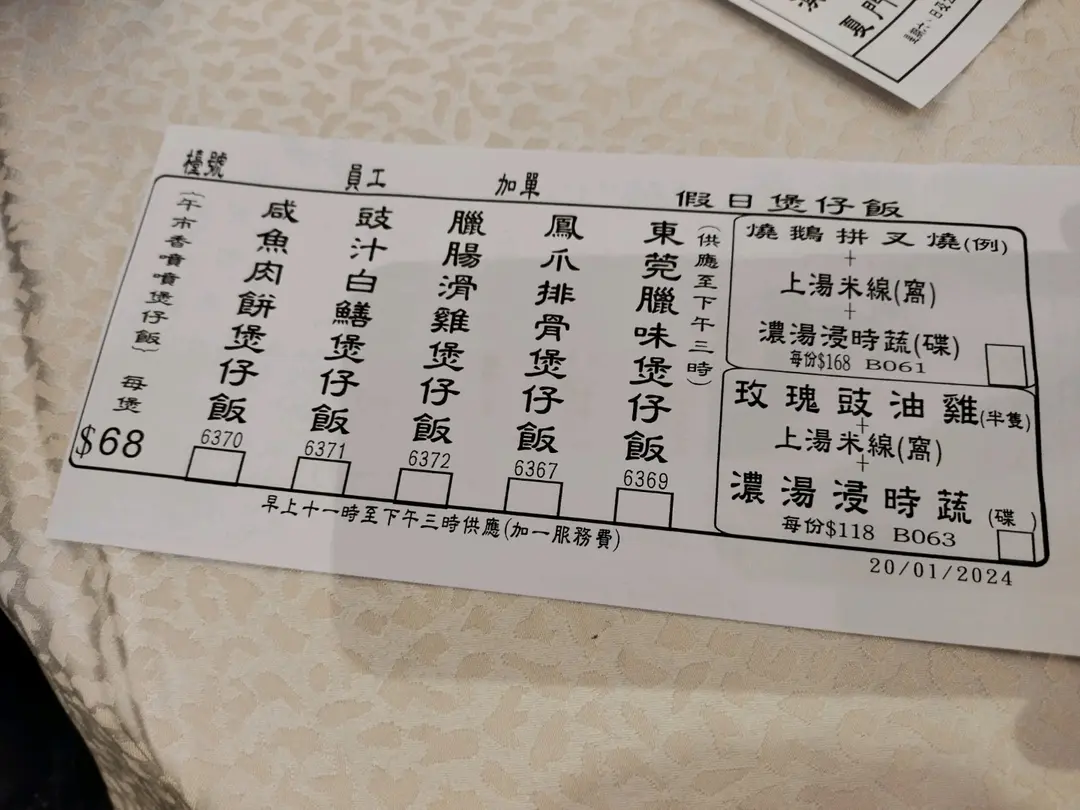 檯號 員工 加單 假日煲仔飯
東莞臘味煲仔飯
(供應至下午三時)
6369
鳳爪排骨煲仔飯
6367
臘腸滑雞煲仔飯
6372
豉汁白鱔煲仔飯
6371
咸魚肉餅煲仔飯
6370
(午市香噴噴煲仔飯)
每煲
$68
早上十一時至下午三時供應(加一服務費)
燒鵝拼叉燒(例)
+
上湯米線(窩)
+
濃湯浸時蔬(碟)
每份$168 B061
玫瑰豉油雞(半隻)
+
上湯米線(窩)
+
濃湯浸時蔬(碟)
每份$118 B063
20/01/2024
夏門